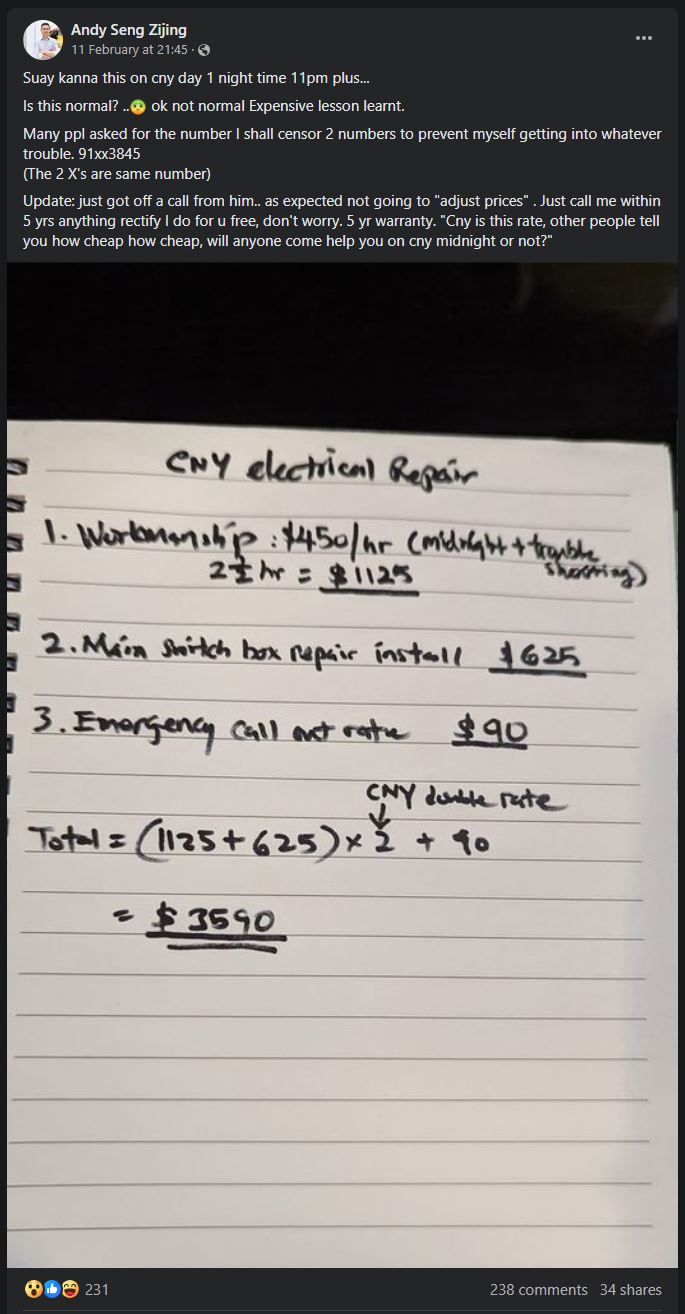 Andy Seng Zijing
11 February at 21:45 ·
Suay kanna this on cny day 1 night time 11pm plus...
Is this normal? ..😰 ok not normal Expensive lesson learnt.
Many ppl asked for the number I shall censor 2 numbers to prevent myself getting into whatever
trouble. 91xx3845
(The 2 X's are same number)
Update: just got off a call from him.. as expected not going to "adjust prices" . Just call me within
5 yrs anything rectify I do for u free, don't worry. 5 yr warranty. "Cny is this rate, other people tell
you how cheap how cheap, will anyone come help you on cny midnight or not?"
CNY electrical Repair
1. Workmanship : $450/hr (midnight + trouble
shooting)
2½ hr = $1125
2. Main switch box repair install $625
3. Emergency call out rate $90
CNY double rate
↓
Total = (1125 + 625) x 2 + 90
= $3590
231
238 comments 34 shares